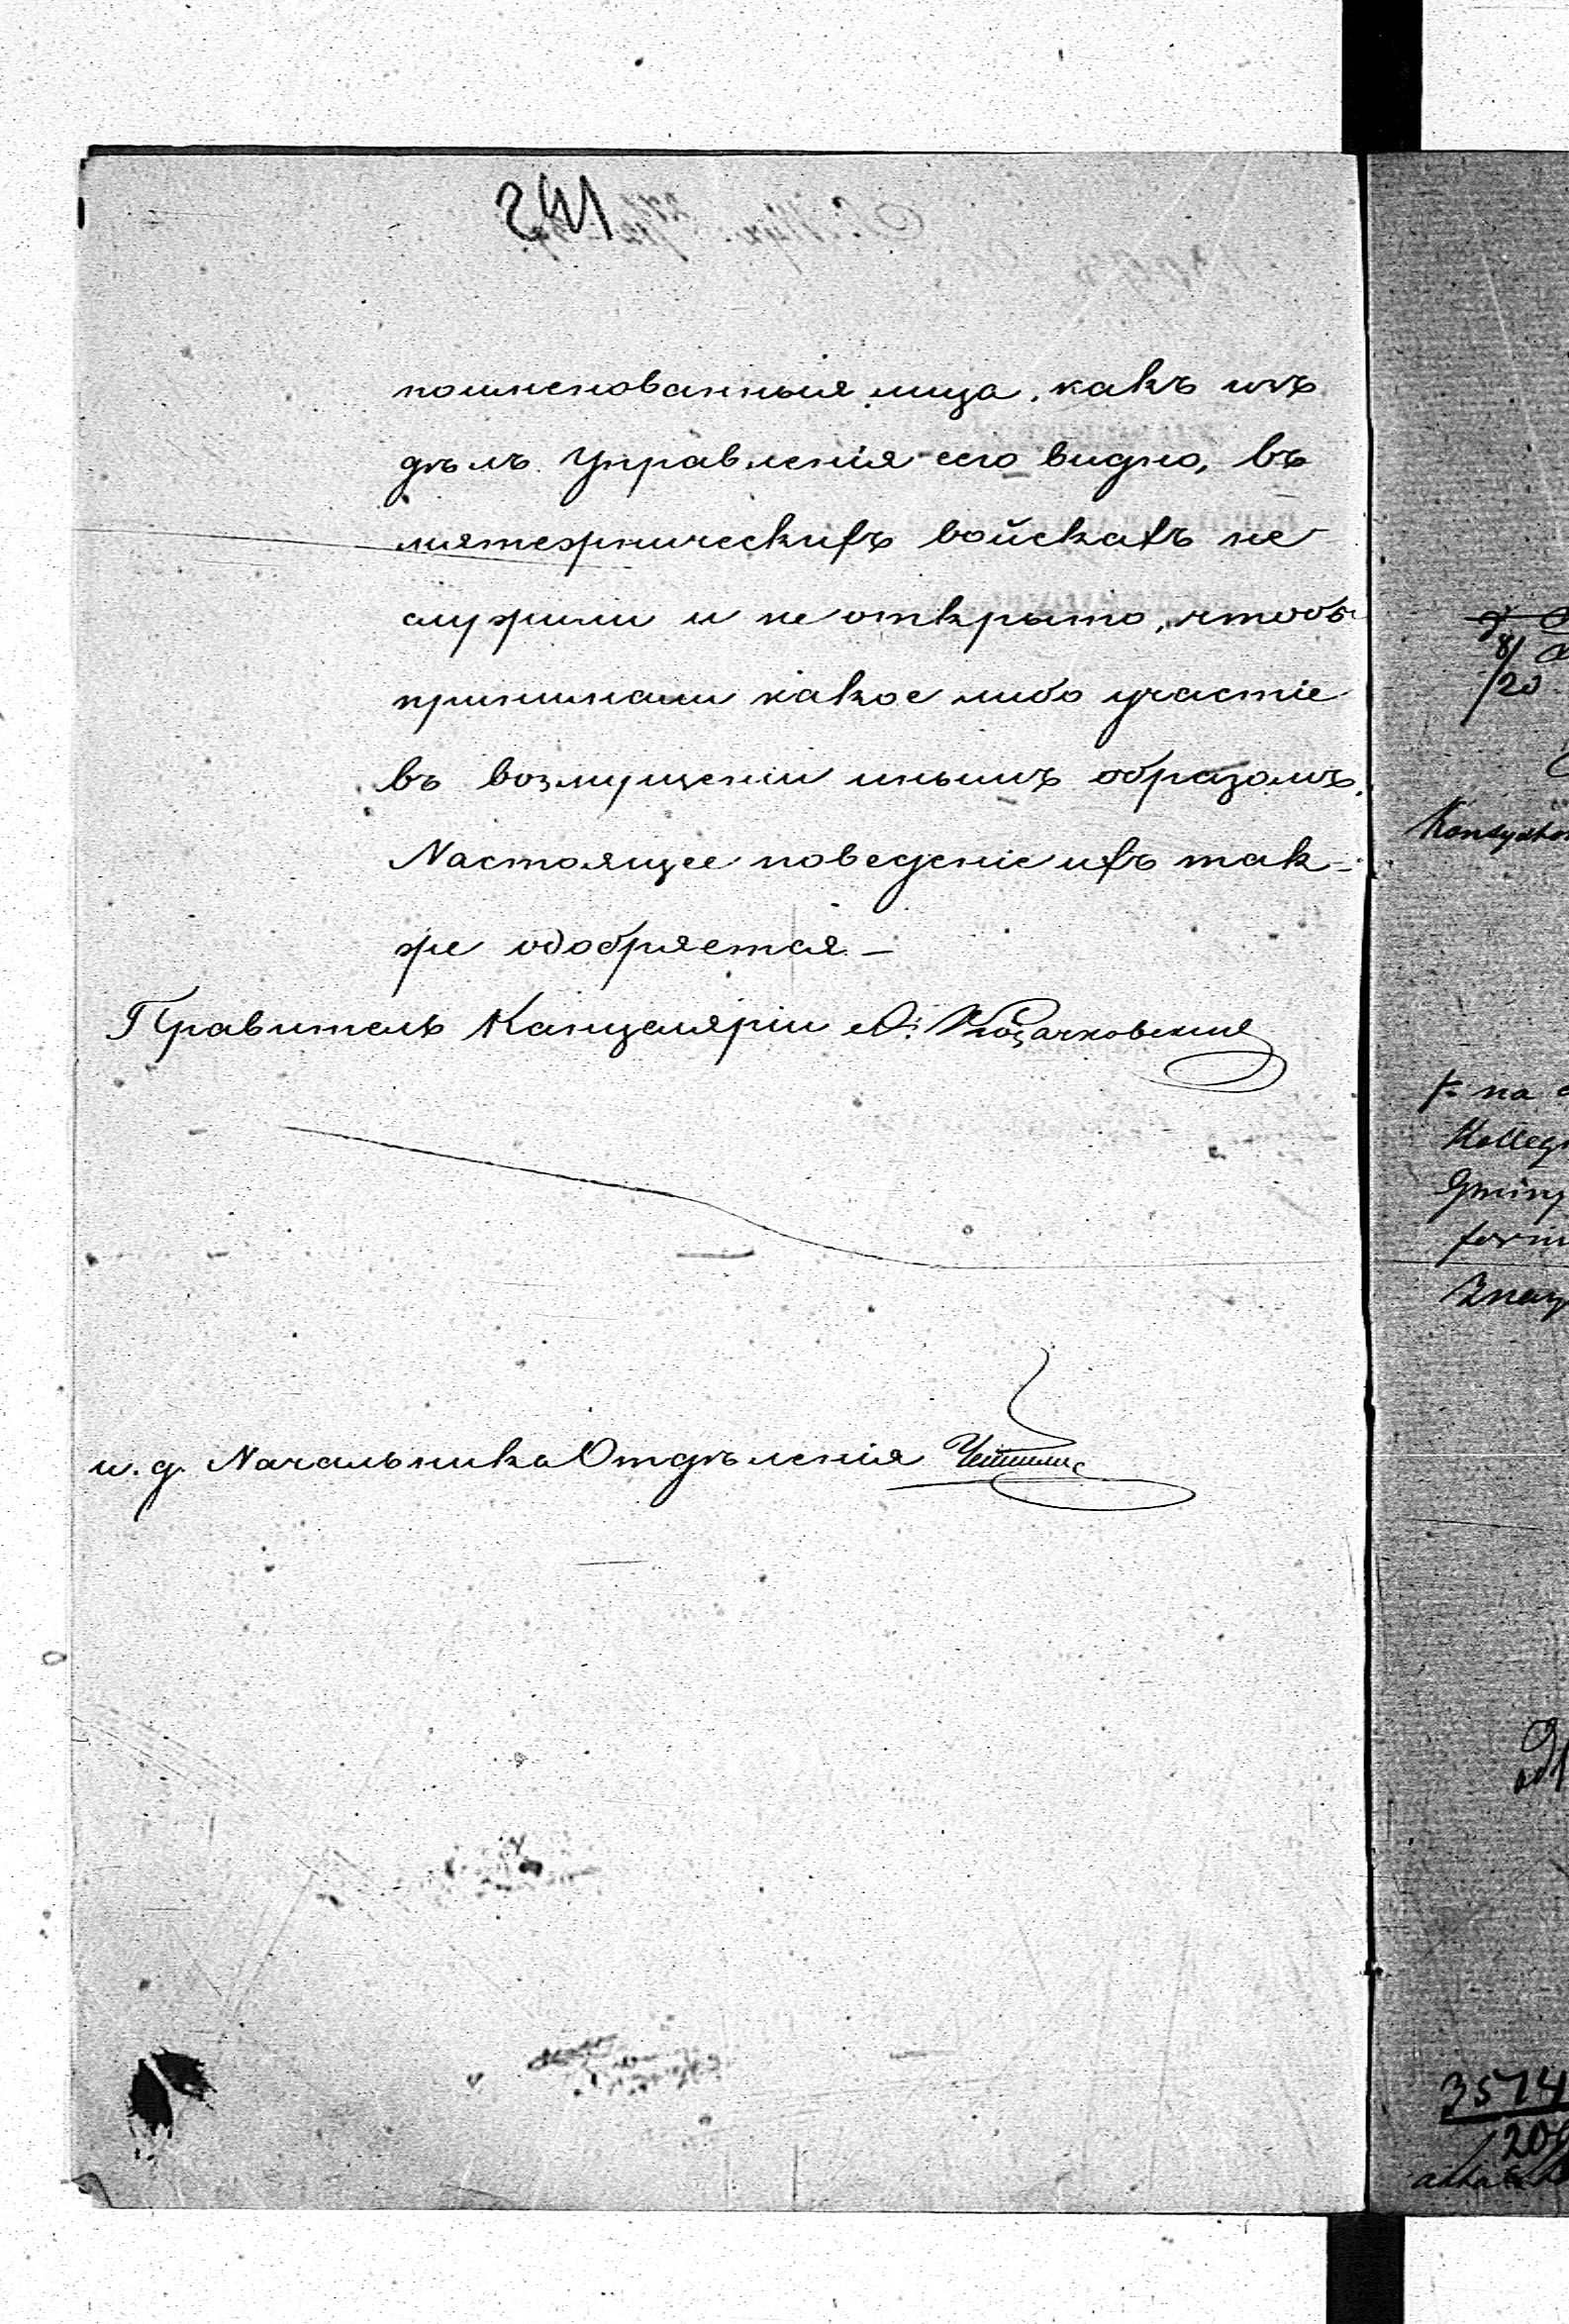 241
поименованныя лица, какъ изъ
дѣлъ Управленія сего видно, въ
мятежническихъ войскахъ не
служили и не открыто, чтобы
принимали какое либо участіе
въ возмущеніи инымъ образомъ.
Настоящее поведеніе ихъ так-
же одобряется. —
Правитель Канцеляріи
и. д. Начальника Отдѣленія
8/20
f. na
3574